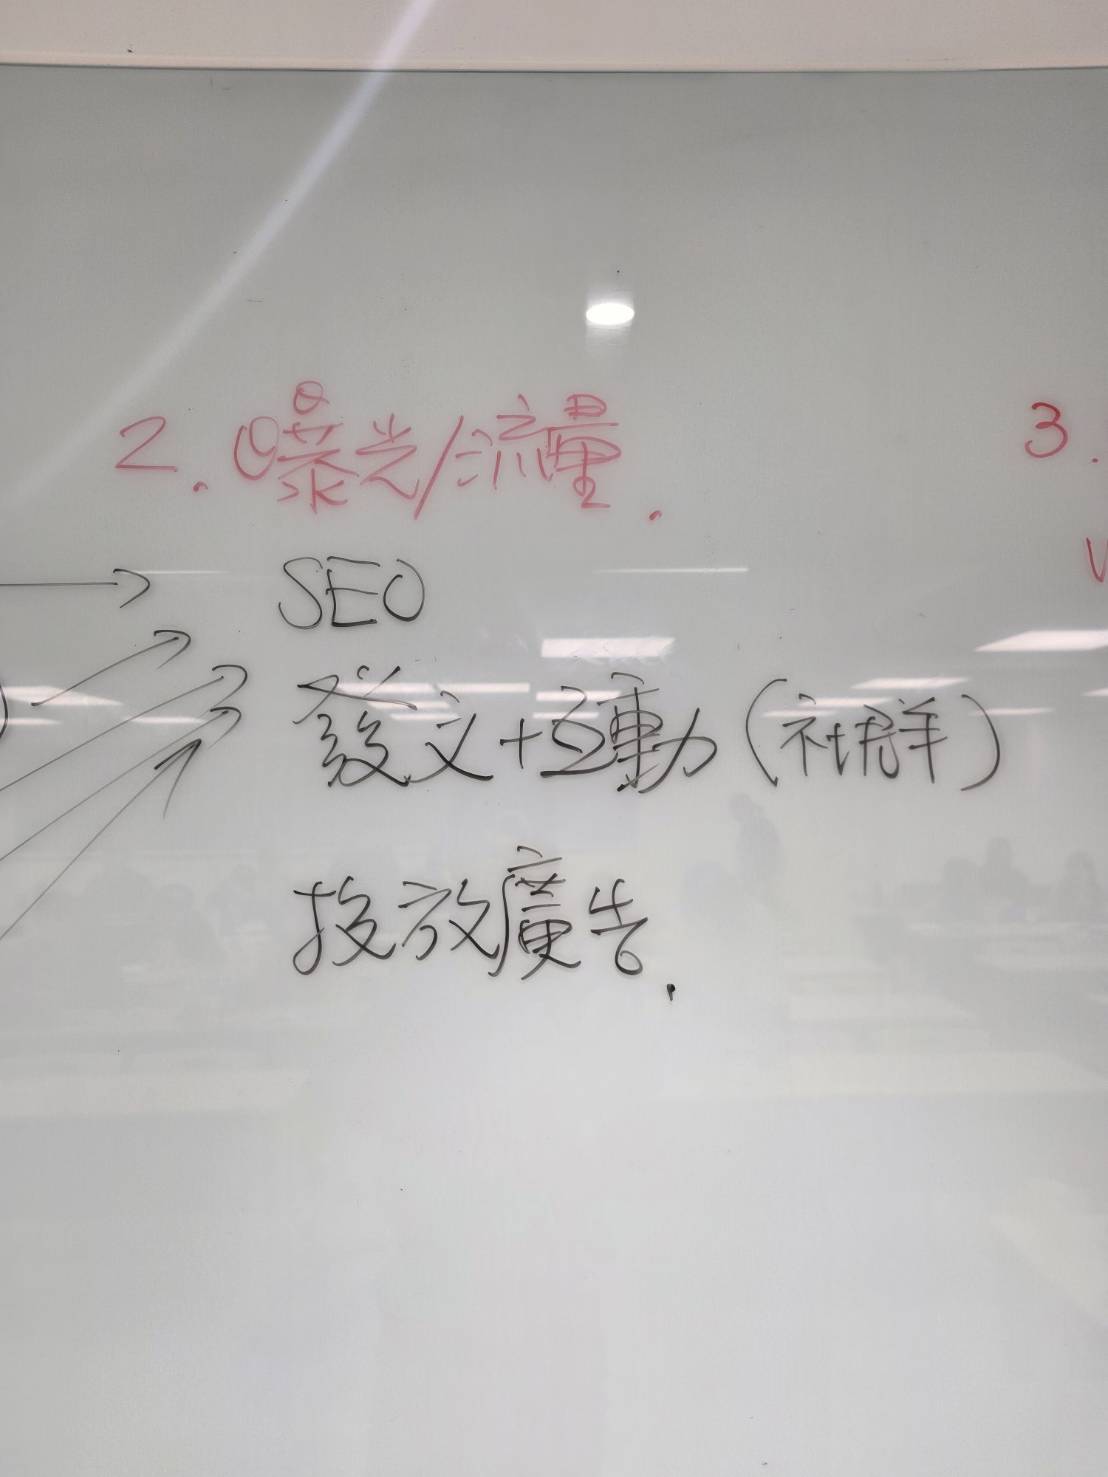 2. 曝光/流量.
SEO
發文+互動(社群)
投放廣告.
3.